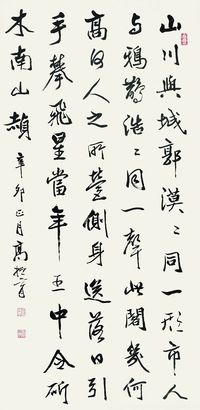 山川與城郭漠〻同一形市人
与鴉鵲浩〻同一聲此閣幾何
高何人之所營側身送落日引
手攀飛星當年王中令斫
木南山赬
辛卯正月高